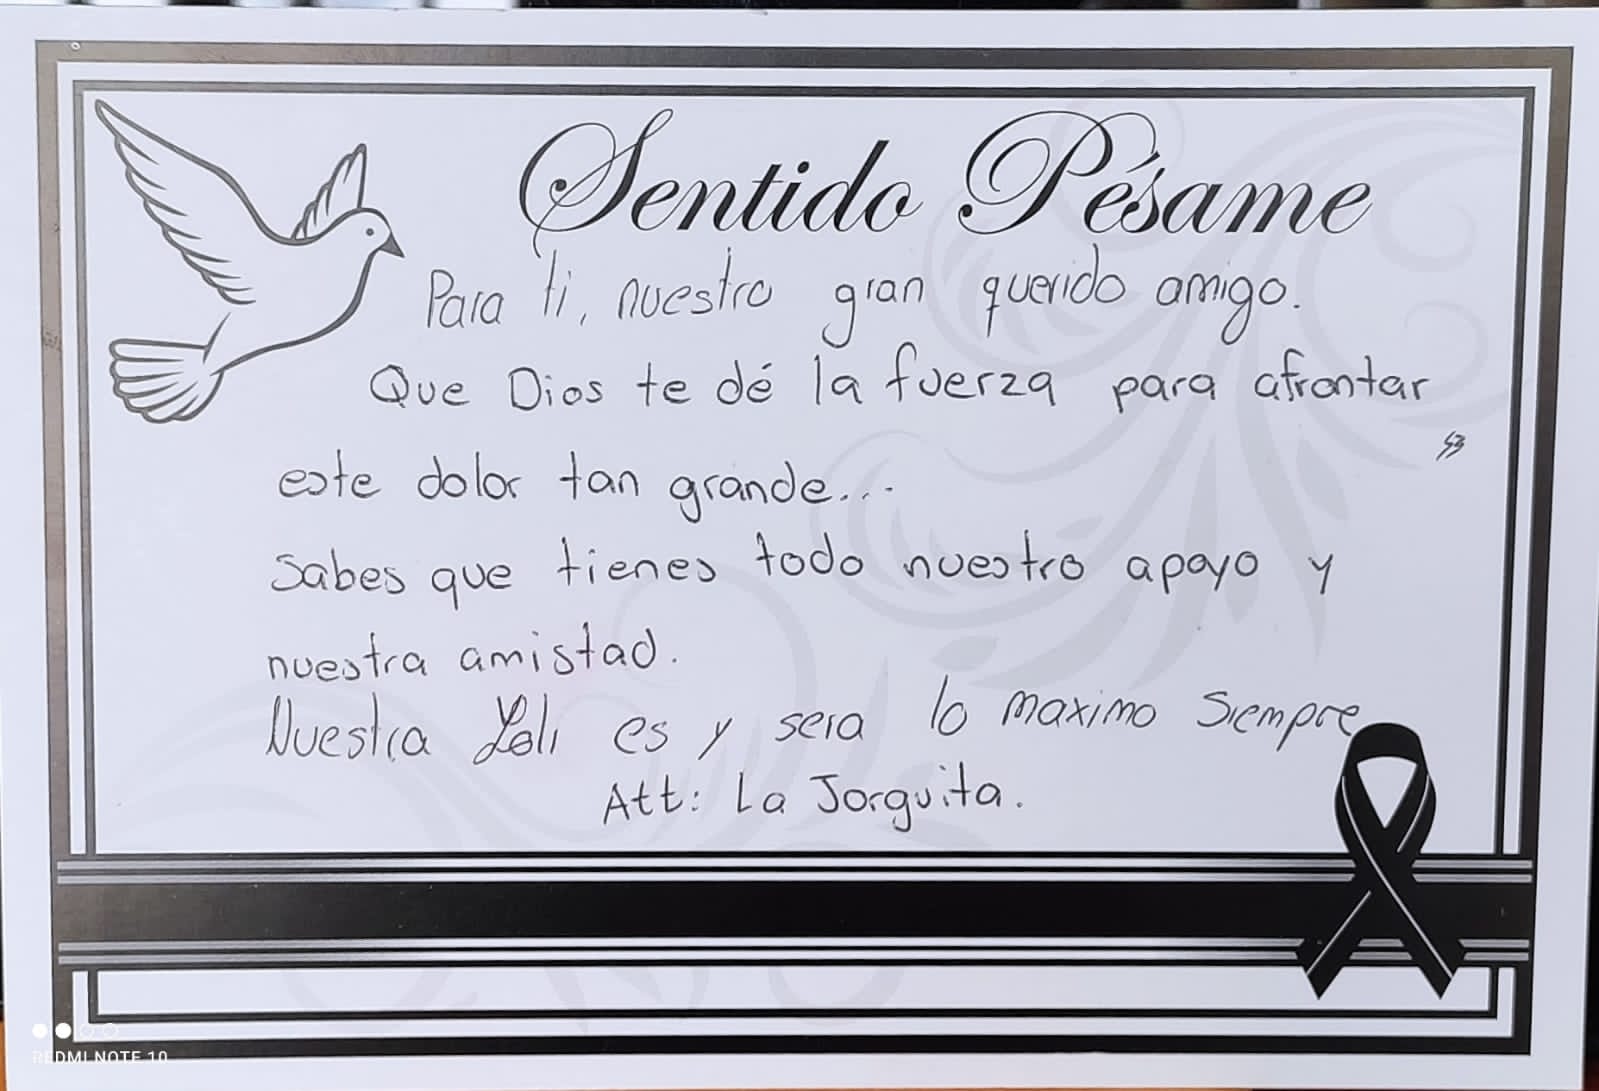 Sentido Pésame
Para ti, nuestro gran querido amigo.
Que Dios te dé la fuerza para afrontar
este dolor tan grande...
Sabes que tienes todo nuestro apoyo y
nuestra amistad.
Nuestra Loli es y sera lo maximo Siempre
Att: La Jorguita.
REDMI NOTE 10